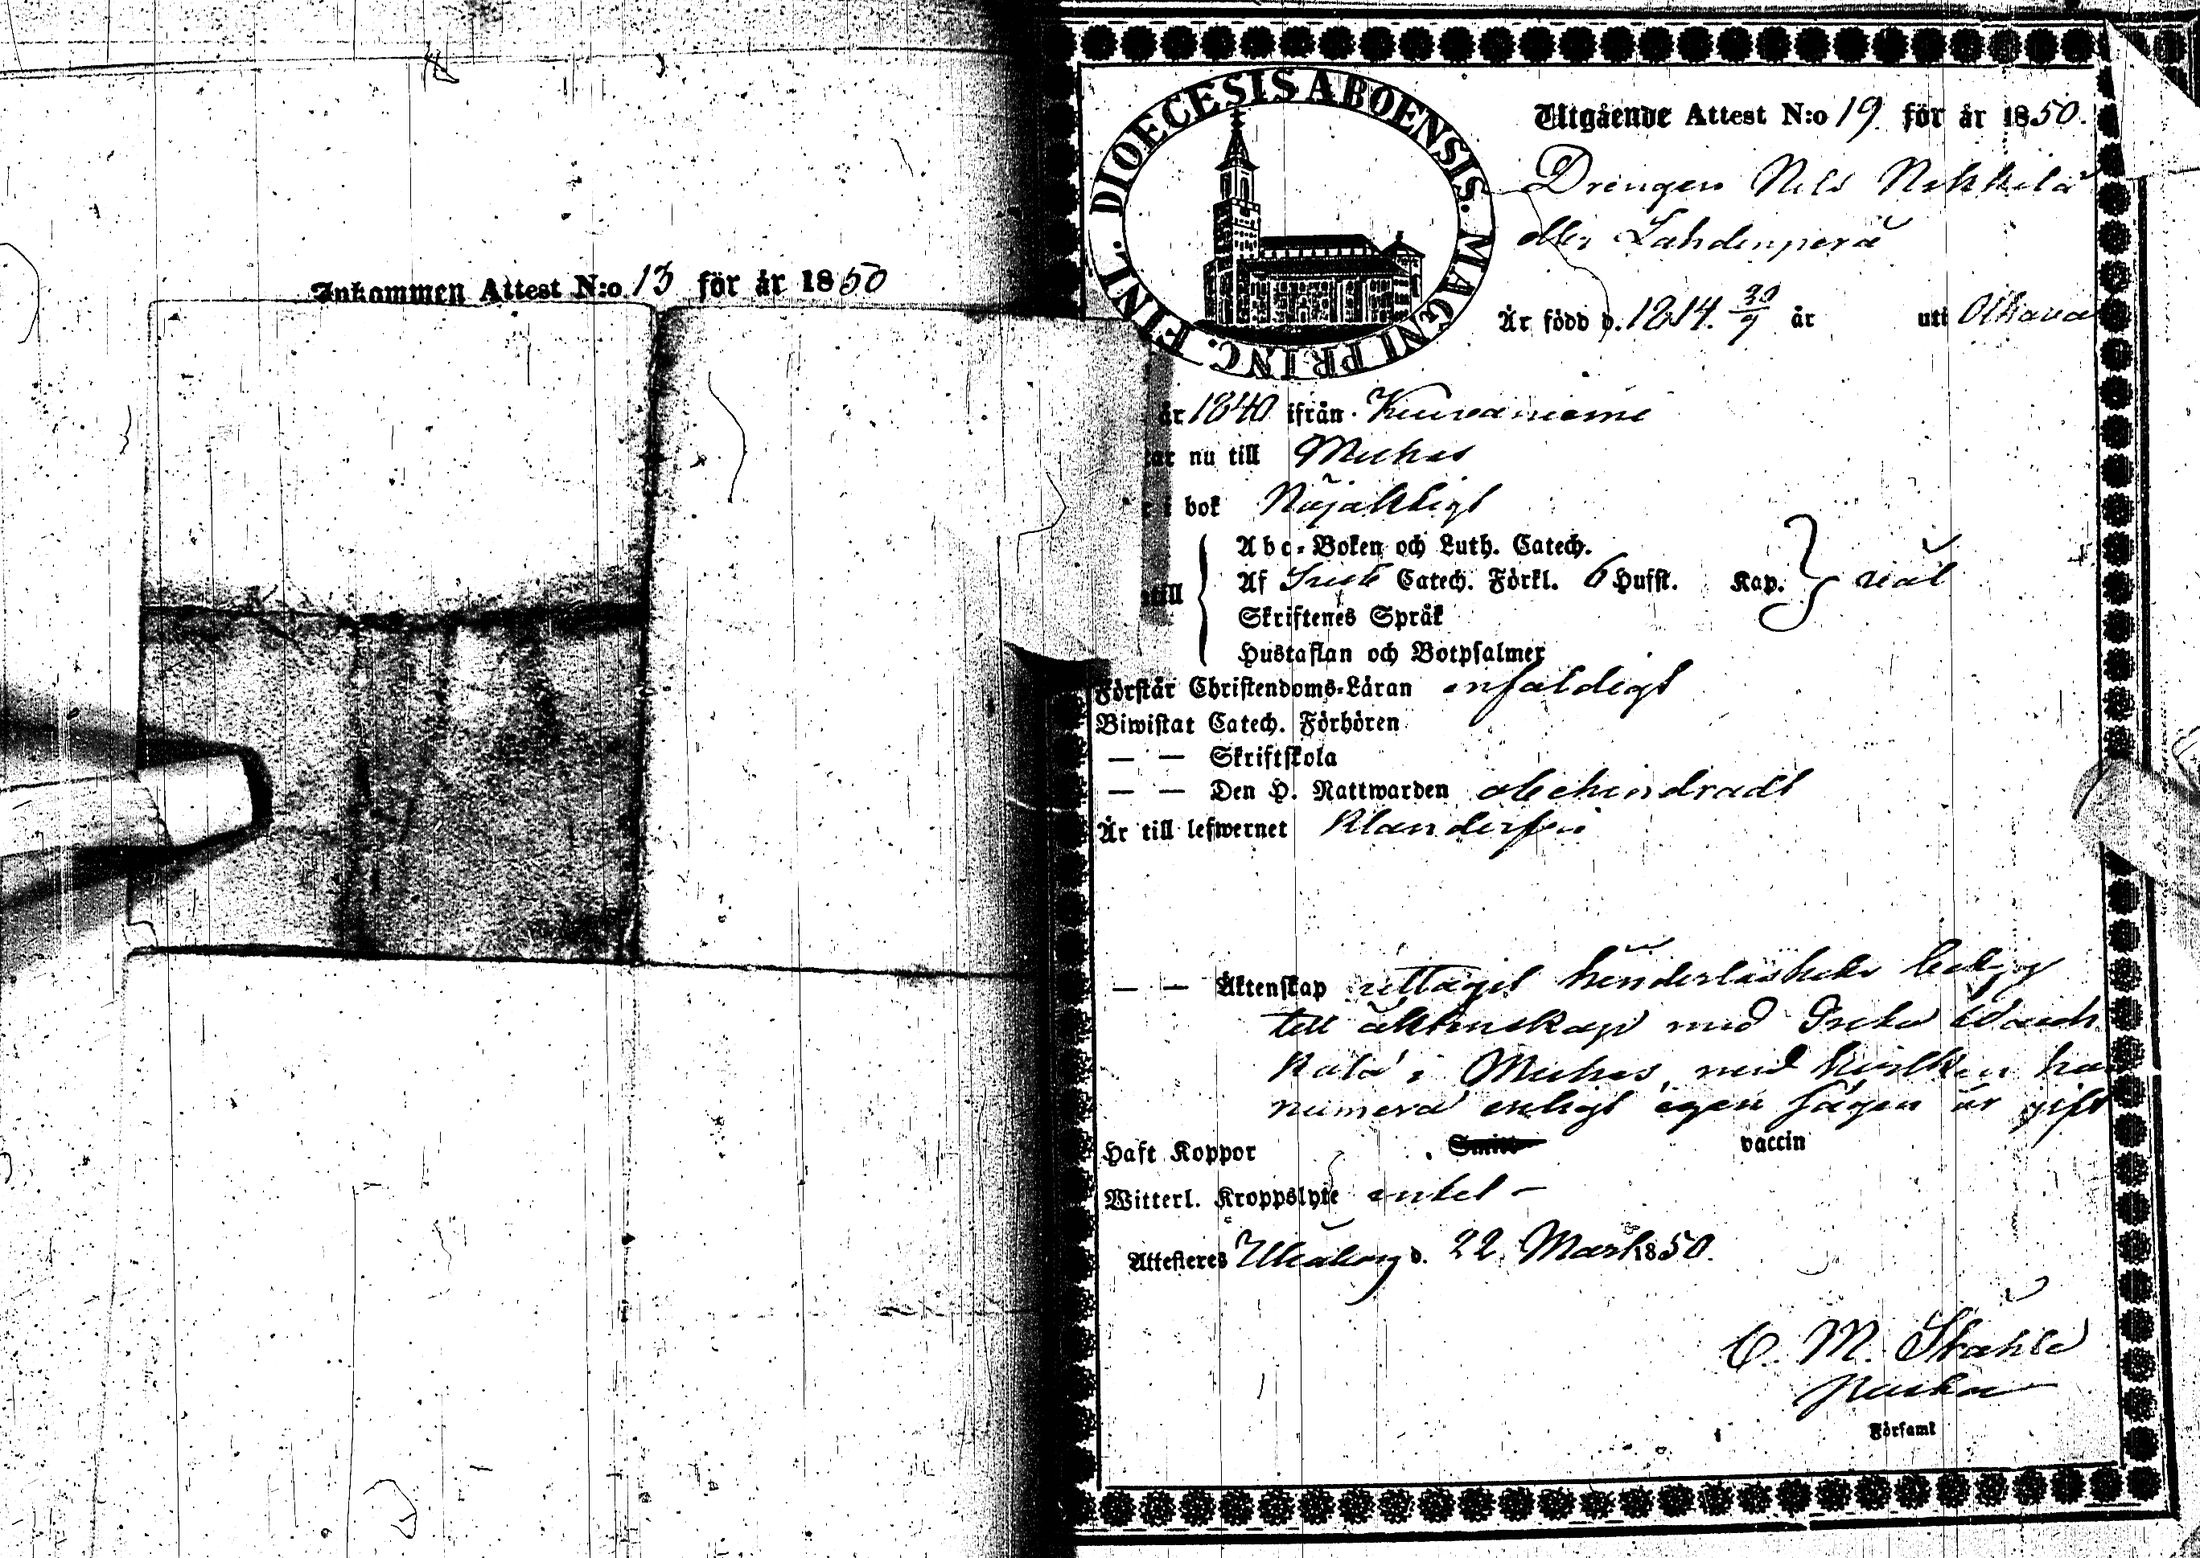 Inkommen Attest N:o 13 för år 1850
DIOECESIS ABOENSIS. MAGNI PRINC. FINL.
Utgående Attest N:o 19 för år 1850.
Drengen Nils Nikkilä
eller Lahdenperä
Är född d. 1814. 20/9 år uti
år 1840 ifrån Kuivaniemi
nu till Muhos
i bok Nöjaktligt
Abc-Boken och Luth. Catech.
Af Catech. Förkl. 6 Hufst. Kap.
till
Skriftenes Språk
Hustaflan och Botpsalmer
Förstår Christendoms-Läran enfaldigt
Biwistat Catech. Förhören
— — Skriftskola
— — Den H. Nattwarden obehindradt
Är till lefwernet klanderfri
— — Äktenskap uttagit hinderlöshets betyg
till äktenskap med Greta
i Muhos, med hwilken han
numera enligt egen sägen är gift
Haft Koppor vaccin
Witterl. Kroppslyte intet —
Attesteras Uleåborg d. 22 Mars 1850.
C. M. Stråhle
Församl